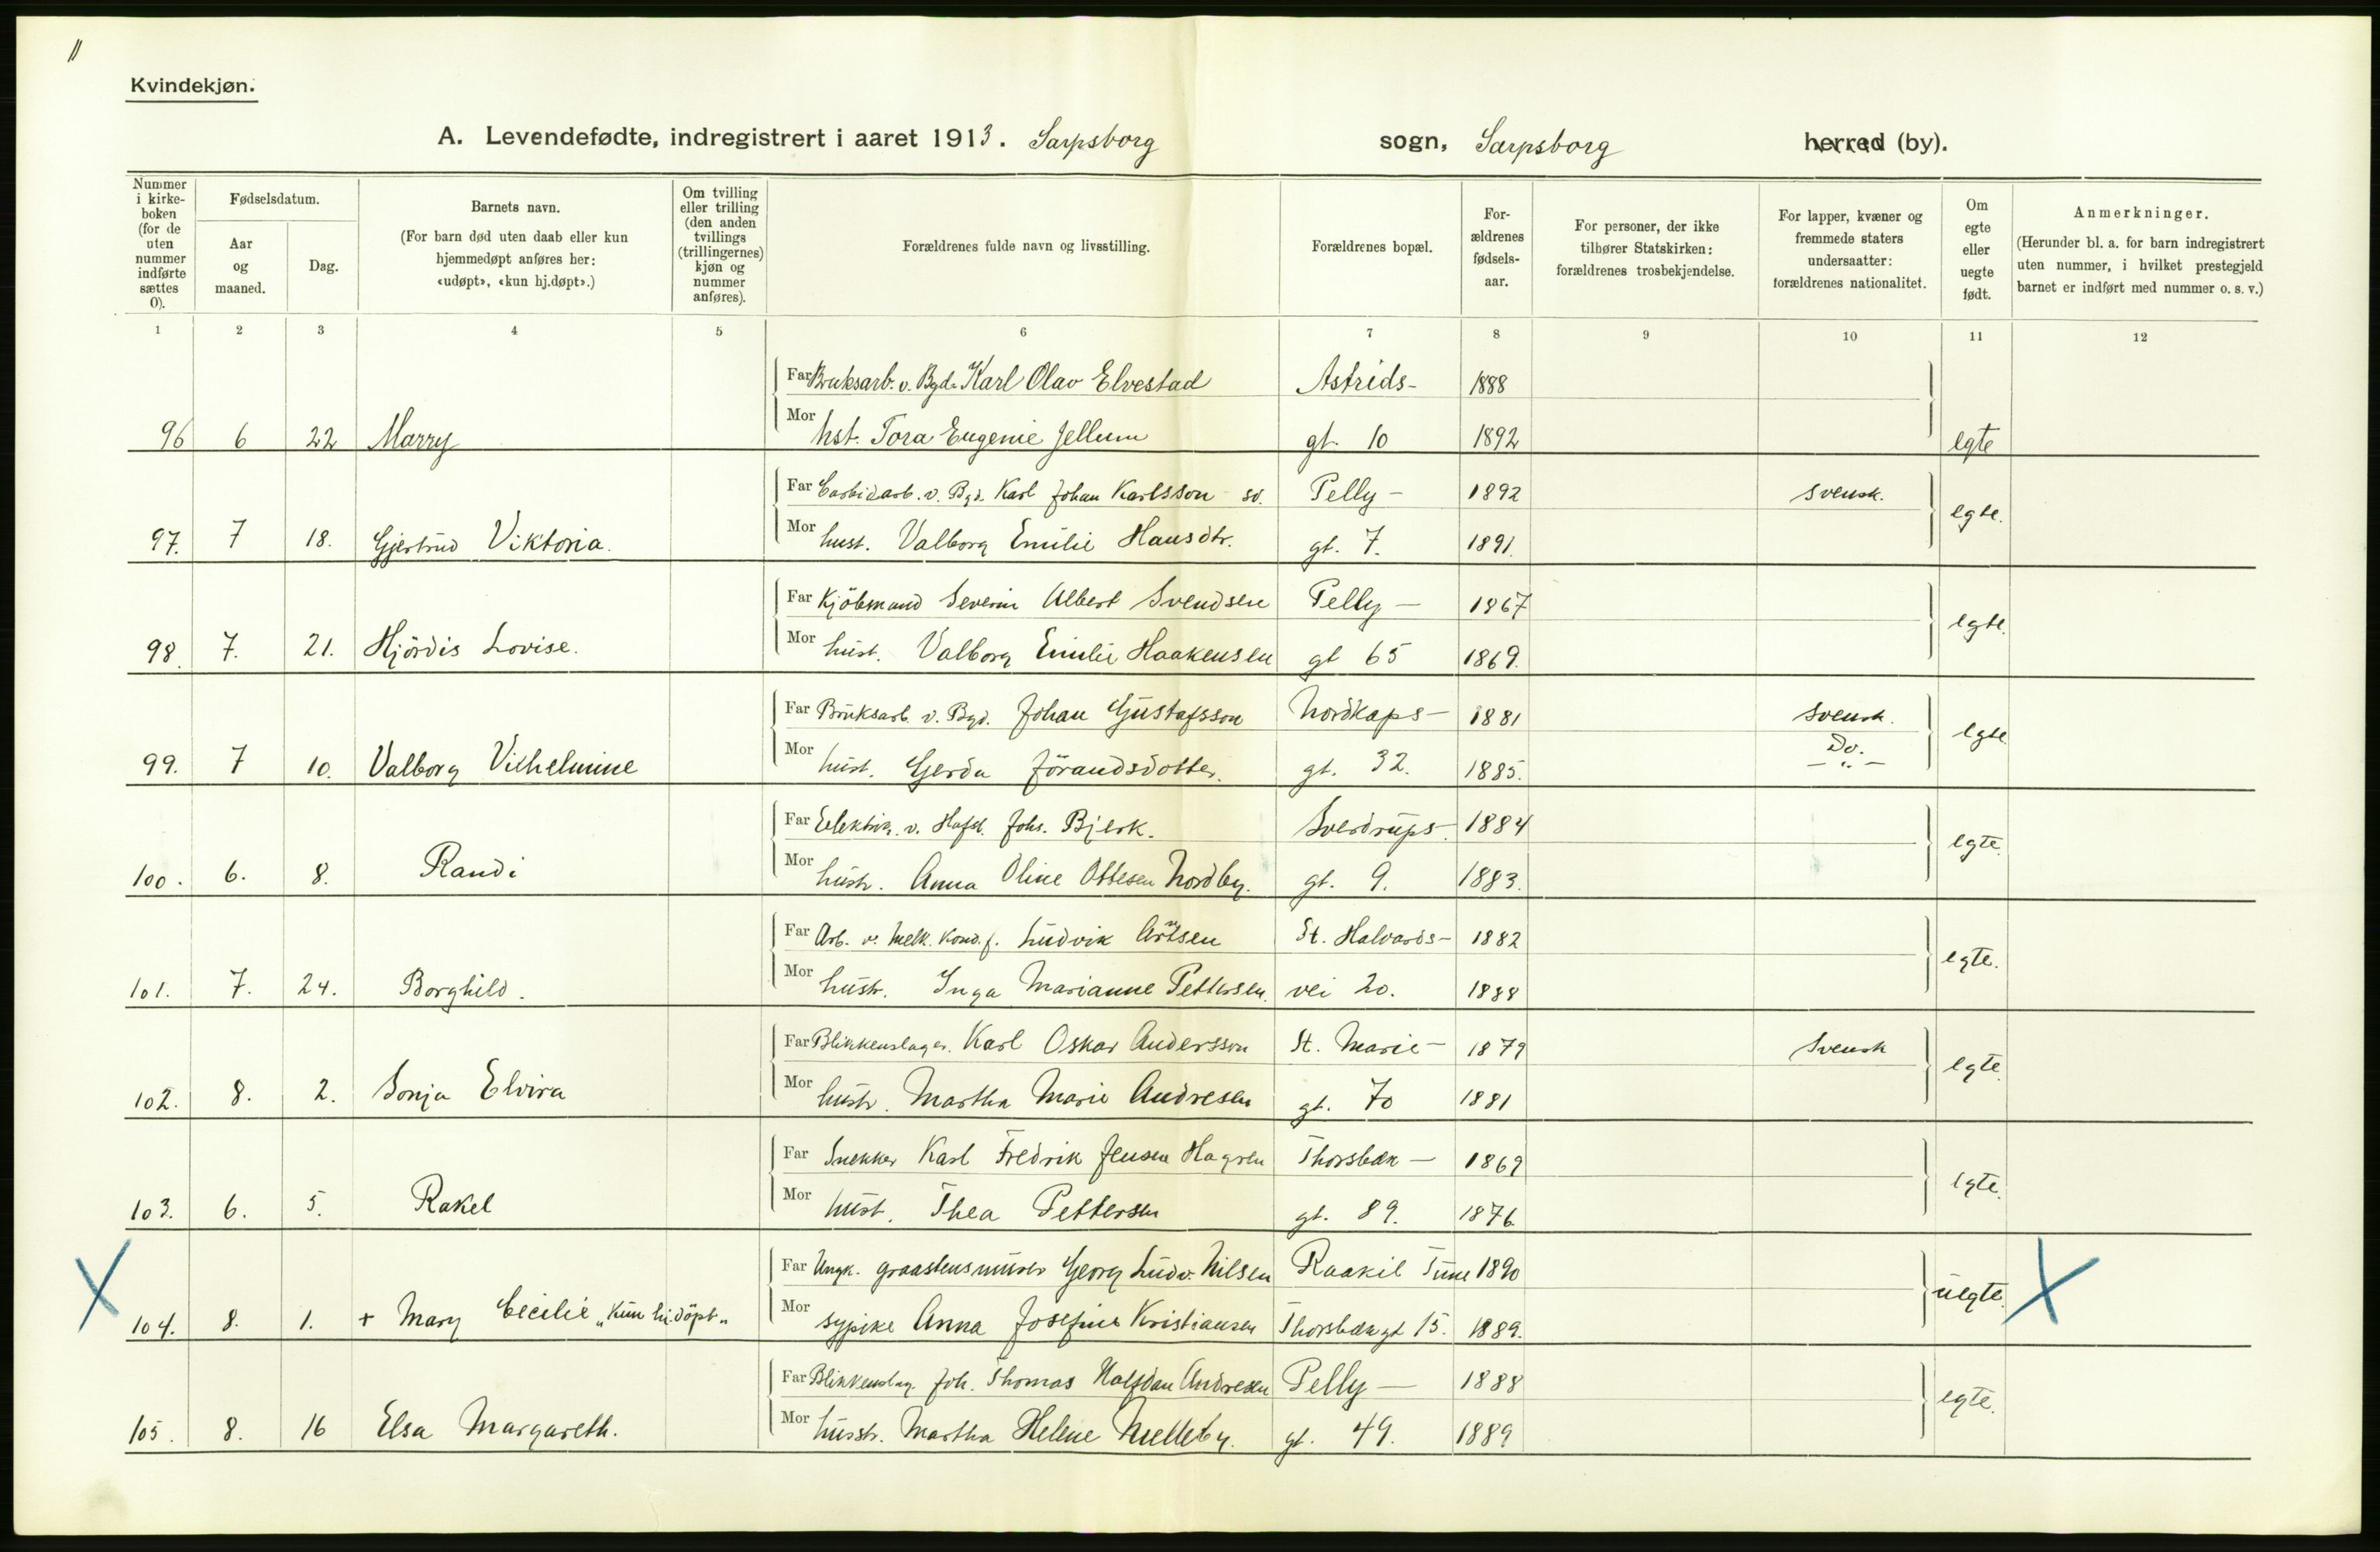 11
Kvindekjøn.
A. Levendefødte, indregistrert i aaret 1913. Sarpsborg sogn, Sarpsborg herred (by).
Nummer i kirke-boken (for de uten nummer indførte sættes 0).
Fødselsdatum.
Aar og maaned.
Dag.
Barnets navn.
(For barn død uten daab eller kun hjemmedøpt anføres her: «udøpt», «kun hj.døpt».)
Om tvilling eller trilling (den anden tvillings (trillingernes) kjøn og nummer anføres).
Forældrenes fulde navn og livsstilling.
Forældrenes bopæl.
For-ældrenes fødsels-aar.
For personer, der ikke tilhører Statskirken: forældrenes trosbekjendelse.
For lapper, kvæner og fremmede staters undersaatter: forældrenes nationalitet.
Om egte eller uegte født.
Anmerkninger.
(Herunder bl. a. for barn indregistrert uten nummer, i hvilket prestegjeld barnet er indført med nummer o. s. v.)
1 2 3 4 5 6 7 8 9 10 11 12
Far Bruksarb. v. Bgd. Karl Olav Elvestad Astrids- 1888
96 6 22 Marry Mor hst. Tora Eugenie Jellum gt. 10 1892 egte
Far Carbidarb. v. Bgd. Karl Johan Karlsson sv. Pelly- 1892 svensk.
97. 7 18. Gjertrud Viktoria. Mor hust. Valborg Emilie Hansdtr. gt. 7. 1891. egte.
Far Kjöbmand Severin Albert Svendsen Pelly- 1867
98. 7. 21. Hjördis Lovise. Mor hust. Valborg Emilie Haakensen gt 65 1869. egte.
Far Bruksarb. v. Bgd. Johan Gustafsson Nordkaps- 1881 svensk.
99. 7 10. Valborg Vilhelmine Mor hust. Gerda Jörandsdotter. gt. 32. 1885. Do. -„- egte
Far Elektrik. v. Hafsl. Johs. Bjerk. Sverdrups- 1884
100. 6. 8. Randi Mor hustr. Anna Oline Ottesen Nordby. gt. 9. 1883. egte.
Far Arb. v. Melk. Kond. f. Ludvik Artsen St. Halvards- 1882
101. 7. 24. Borghild. Mor hustr. Inga Marianne Pettersen. vei 20. 1888 egte.
Far Blikkenslager. Karl Oskar Andersson St. Marie- 1879 Svensk
102. 8. 2. Sonja Elvira Mor hustr. Martha Marie Andresen gt. 70 1881 egte.
Far Snekker Karl Fredrik Jensen Hagren Thorsbæk- 1869
103. 6. 5. Rakel Mor hust. Thea Pettersen gt. 89. 1876. egte.
Far Ungk. graastensmurer Georg Ludv. Nilsen Raakil Tune 1890
104. 8. 1. + Mary Cecilie „Kun hj.döpt„ Mor sypike Anna Josefine Kristiansen Thorsbæk gt 15. 1889. uegte.
Far Blikkenslag. Joh. Thomas Halfdan Andresen Pelly- 1888
105. 8. 16 Elsa Margareth. Mor husstr. Martha Helene Melleby. gt. 49. 1889 egte.